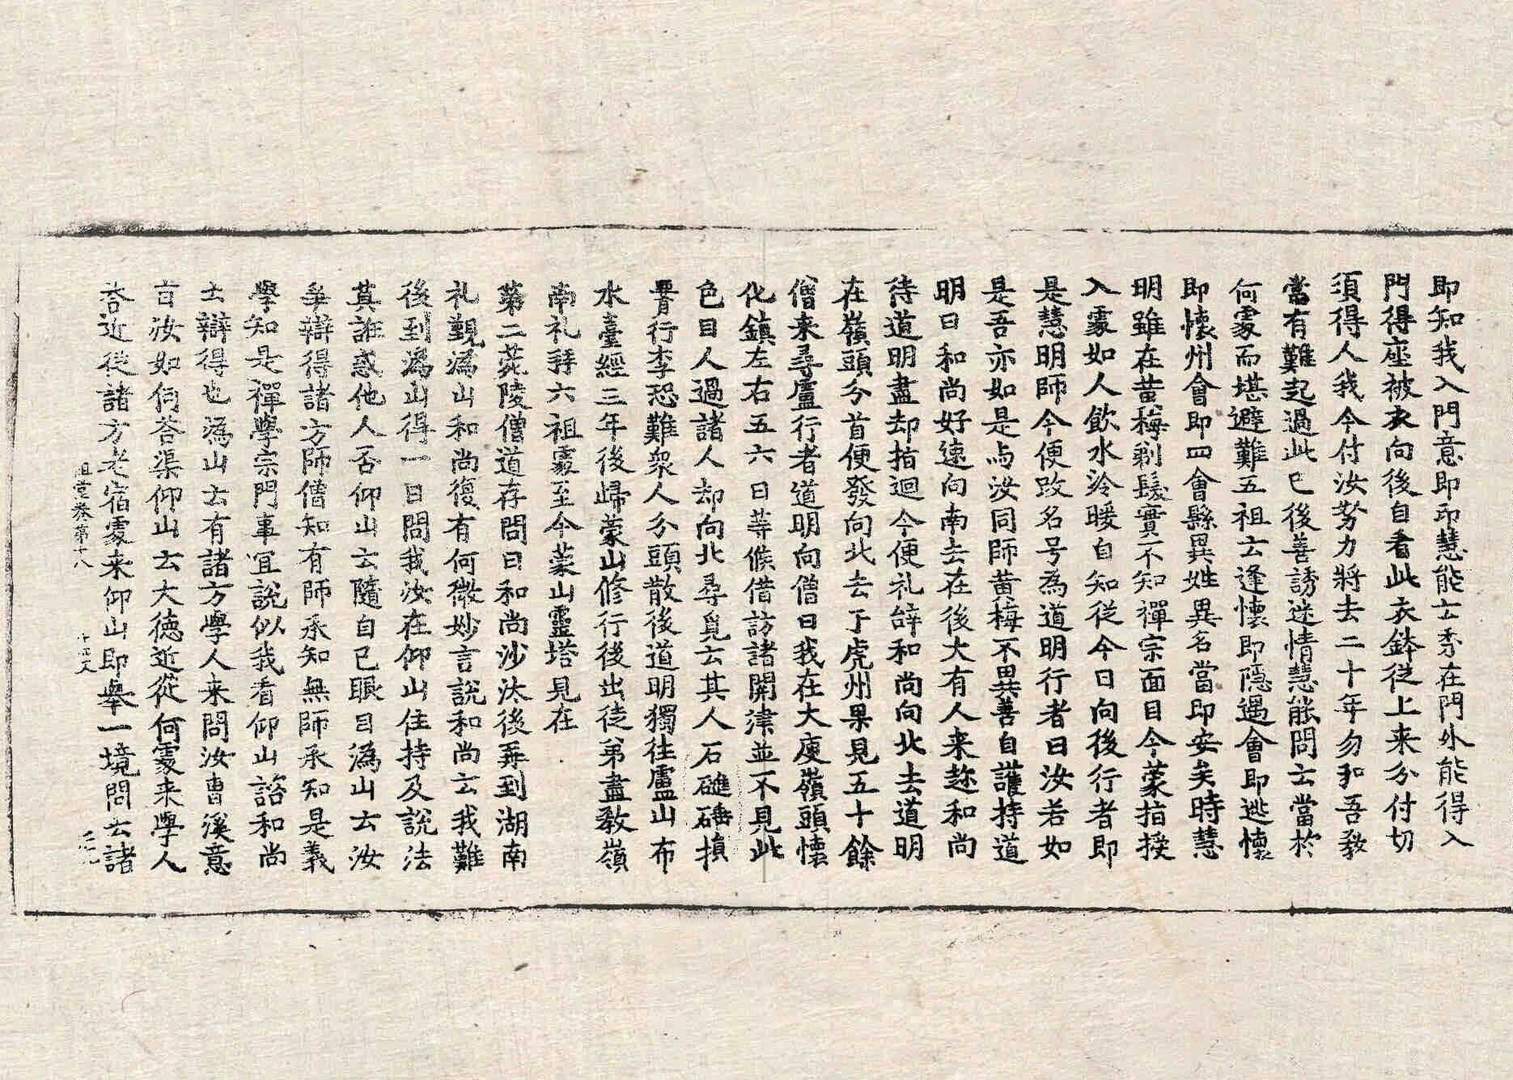 即知我入門意即印慧能云秀在門外能得入
門得座被衣向後自看此衣鉢従上来分付切
須得人我今付汝努力將去二十年勿弘吾教
當有難起過此已後善誘迷情慧能問云當於
何處而堪避難五祖云逢懷即隱遇會即逃懷
即懷州會即四會縣異姓異名當即安矣時慧
明雖在黄梅剃髮實不知禪宗面目今蒙指授
入處如人飲水冷暖自知從今日向後行者即
是慧明師今便改名号為道明行者曰汝若如
是吾亦如是与汝同師黄梅不異善自護持道
明曰和尚好速向南去在後大有人来趂和尚
待道明盡却指迴今便礼辞和尚向北去道明
在嶺頭分首便發向北去于虎州果見五十餘
僧来尋盧行者道明向僧曰我在大庾嶺頭懷
化鎮左右五六日等候借訪諸關津並不見此
色目人過諸人却向北尋覓云其人石碓磓損
膋行李恐難衆人分頭散後道明獨往廬山布
水臺經三年後歸蒙山修行後出徒弟盡教嶺
南礼拜六祖處至今蒙山靈塔見在
第二茺陵僧道存問曰和尚沙汰後再到湖南
礼覲溈山和尚復有何微妙言說和尚云我難
後到溈山得一日問我汝在仰山住持及說法
莫誑惑他人否仰山云隨自己眼目溈山云汝
爭辯得諸方師僧知有師承知無師承知是義
學知是禪學宗門事宜說似我看仰山諮和尚
云辯得也溈山云有諸方學人来問汝曹溪意
旨汝如何荅渠仰山云大德近從何處来學人
荅近從諸方老宿處来仰山即舉一境問云諸
祖堂卷第十八 十四丈